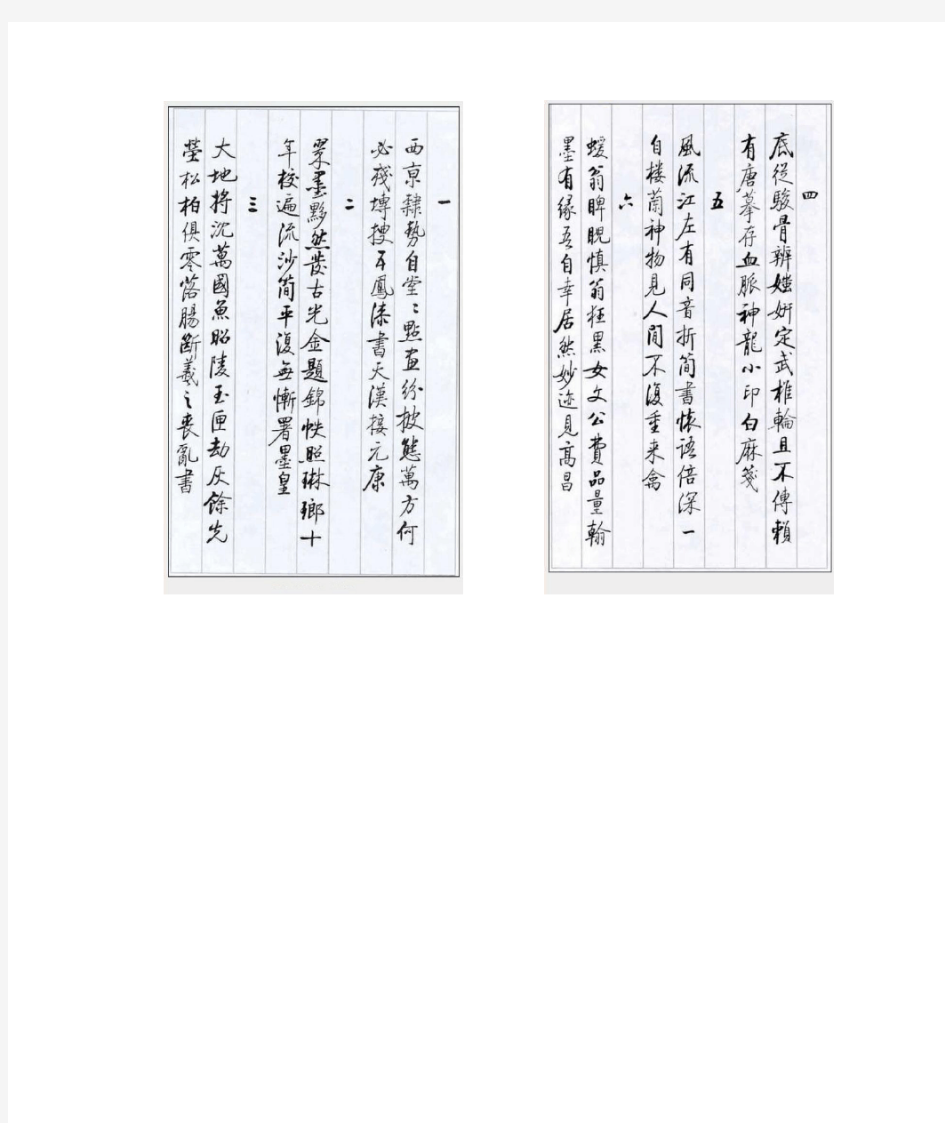 一
西京隸勢自堂々點畫紛披態萬方何
必殘塼搜五鳳漆書天漢接元康
二
翠墨黟然發古光金題錦帙照琳瑯十
年校遍流沙簡平復無慚署墨皇
三
大地將沈萬國魚昭陵玉匣劫灰餘先
塋松柏俱零落腸斷羲之喪亂書
四
底從駿骨辨媸妍定武椎輪且不傳賴
有唐摹存血脈神龍小印白麻箋
五
風流江左有同音折簡書懷語倍深一
自樓蘭神物見人間不復重來禽
六
蝯翁睥睨慎翁狂黑女文公費品量翰
墨有緣吾自幸居然妙迹見高昌